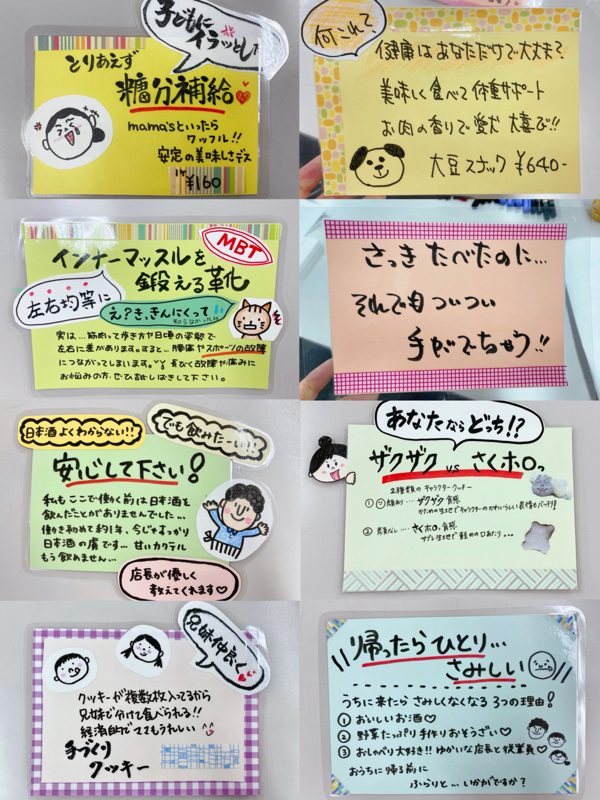 子どもに
イラッとした
とりあえず
糖分補給
mama'sといったら
ワッフル!!
安定の美味しさデス
1ケ
¥160
何これ?
健康はあなただけで大丈夫?
美味しく食べて体重サポート
お肉の香りで愛犬大喜び!!
大豆スナック ¥640-
MBT
インナーマッスルを
鍛える靴
左右均等に
え?き、きんにくって
知らなかったよ
実は…筋肉って歩き方や日頃の姿勢で
左右に差があります。すると…腰痛やスポーツの故障
につながってしまいます。長びく故障や痛みに
お悩みの方、ぜひ試しばきして下さい。
さっきたべたのに…
それでもついつい
手がでちゃう!!
日本酒よくわからない!!
でも飲みたーい!!
安心して下さい!
私もここで働く前は日本酒を
飲んだことがありませんでした…
働き初めて約1年、今じゃすっかり
日本酒の虜です…甘いカクテル
もう飲めません…
店長が優しく
教えてくれます♡
あなたならどっち!?
ザクザク vs さくホロっ
2種類のキャラクタークッキー
①
ザクザク食感
②
さくホロ。食感
兄妹仲良く
クッキーが複数枚入ってるから
兄妹で分けて食べられる!!
経済的でママもうれしい
手づくり
クッキー
帰ったらひとり…
さみしい
うちに来たらさみしくなくなる3つの理由!
① おいしいお酒♡
② 野菜たっぷり手作りおそうざい♡
③ おしゃべり大好き!!ゆかいな店長と従業員♡
おうちに帰る前に
ふらりと…いかがですか?